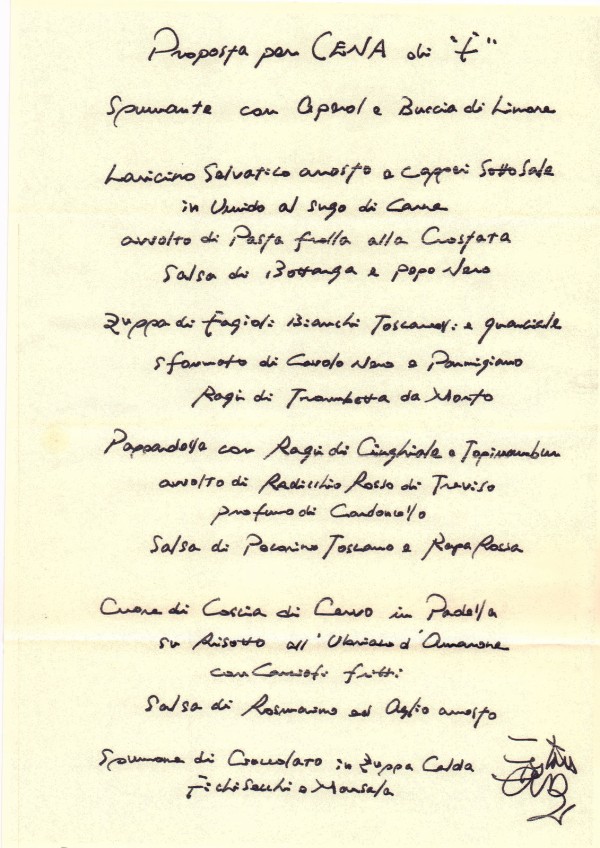 Proposta per CENA di "F"
Spumante con Aperol e Buccia di Limone
Selvatico arrosto e Capperi Sotto Sale
in Umido al sugo di Carne
avvolto di Pasta frolla alla Crostata
Salsa di Bottarga e pepe Nero
Zuppa di Fagioli Bianchi Toscanelli e guanciale
Sformato di Cavolo Nero e Parmigiano
Ragù di Trombetta da Morto
Pappardella con Ragù di Cinghiale e Topinambur
avvolto di Radicchio Rosso di Treviso
profumo di Cardoncello
Salsa di Pecorino Toscano e Rapa Rossa
Cuore di Coscia di Cervo in Padella
su Risotto all'Ubriaco d'Amarone
con Carciofi fritti
Salsa di Rosmarino ed Aglio arrosto
Spumone di Cioccolato in Zuppa Calda
Fichi Secchi e Marsala